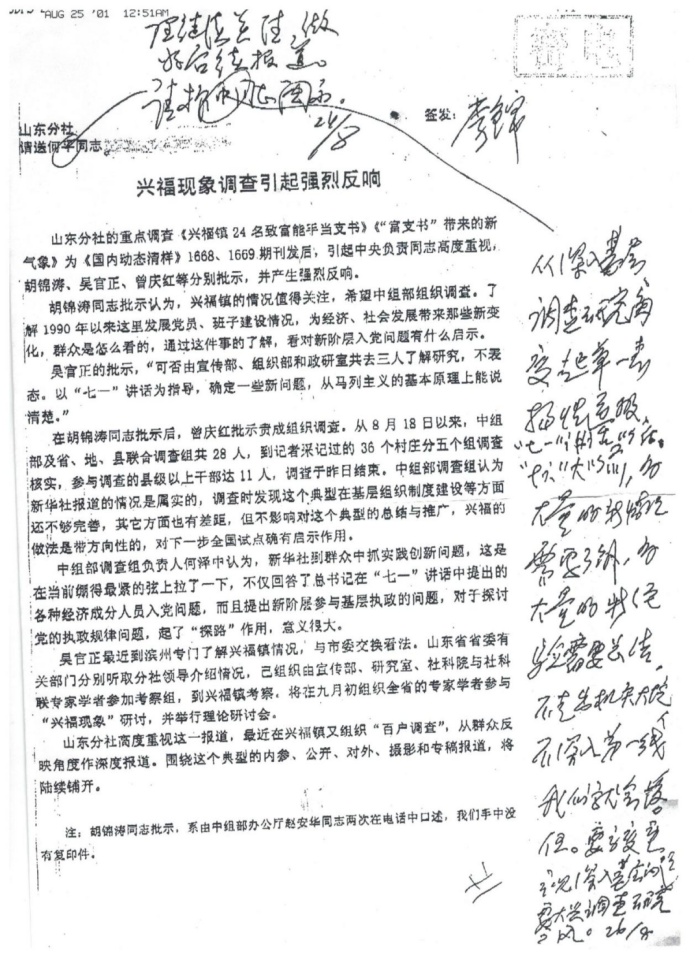 AUG 25 '01 12:51AM
做
好后续报道。
24/8
签发：
山东分社
请送何平同志
兴福现象调查引起强烈反响
山东分社的重点调查《兴福镇24名致富能手当支书》《“富支书”带来的新
气象》为《国内动态清样》1668、1669期刊发后，引起中央负责同志高度重视，
胡锦涛、吴官正、曾庆红等分别批示，并产生强烈反响。
胡锦涛同志批示认为，兴福镇的情况值得关注，希望中组部组织调查。了
解1990年以来这里发展党员、班子建设情况，为经济、社会发展带来那些新变
化，群众是怎么看的，通过这件事的了解，看对新阶层入党问题有什么启示。
吴官正的批示，“可否由宣传部、组织部和政研室共去三人了解研究，不表
态。以“七一”讲话为指导，确定一些新问题，从马列主义的基本原理上能说
清楚。”
在胡锦涛同志批示后，曾庆红批示责成组织调查。从8月18日以来，中组
部及省、地、县联合调查组共28人，到记者采记过的36个村庄分五个组调查
核实，参与调查的县级以上干部达11人，调查于昨日结束。中组部调查组认为
新华社报道的情况是属实的，调查时发现这个典型在基层组织制度建设等方面
还不够完善，其它方面也有差距，但不影响对这个典型的总结与推广，兴福的
做法是带方向性的，对下一步全国试点确有启示作用。
中组部调查组负责人何泽中认为，新华社到群众中抓实践创新问题，这是
在当前绷得最紧的弦上拉了一下，不仅回答了总书记在“七一”讲话中提出的
各种经济成分人员入党问题，而且提出新阶层参与基层执政的问题，对于探讨
党的执政规律问题，起了“探路”作用，意义很大。
吴官正最近到滨州专门了解兴福镇情况，与市委交换看法。山东省省委有
关部门分别听取分社领导介绍情况，己组织由宣传部、研究室、社科院与社科
联专家学者参加考察组，到兴福镇考察。将在九月初组织全省的专家学者参与
“兴福现象”研讨，并举行理论研讨会。
山东分社高度重视这一报道，最近在兴福镇又组织“百户调查”，从群众反
映角度作深度报道。围绕这个典型的内参、公开、对外、摄影和专稿报道，将
陆续铺开。
注：胡锦涛同志批示，系由中组部办公厅赵安华同志两次在电话中口述，我们手中没
有复印件。
从深入基层
调查研究角
度起草一表
扬性通报，
大量的新情况
需要了解，有
大量的新经
验需要总结，
不走出机关大院
不深入第一线
我们就会落
伍。要高度重
视深入基层的
调查研究
26/8